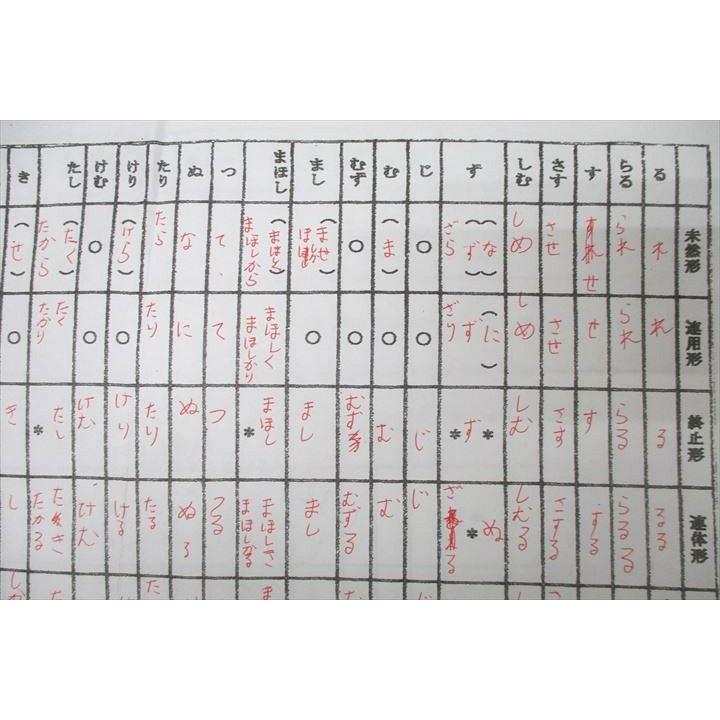 未然形
連用形
終止形
連体形
る
れ
れ
る
るる
らる
られ
られ
らる
らるる
す
せ
せ
す
する
さす
させ
させ
さす
さする
しむ
しめ
しめ
しむ
しむる
ず
(な) (ず) ざら
(に) ず ざり
* ず *
ぬ * ざる
じ
○
○
じ
じ
む
(ま)
○
む
む
むず
○
○
むず
むずる
まし
(ませ
○
まし
まし
まほし
(まほしく) まほしから
まほしく まほしかり
まほし *
まほしき まほしかる
つ
て
て
つ
つる
ぬ
な
に
ぬ
ぬる
たり
たら
たり
たり
たる
けり
(けら)
○
けり
ける
けむ
○
○
けむ
けむ
たし
(たく) たから
たく たかり
たし *
たき たかる
き
(せ)
○
き
し